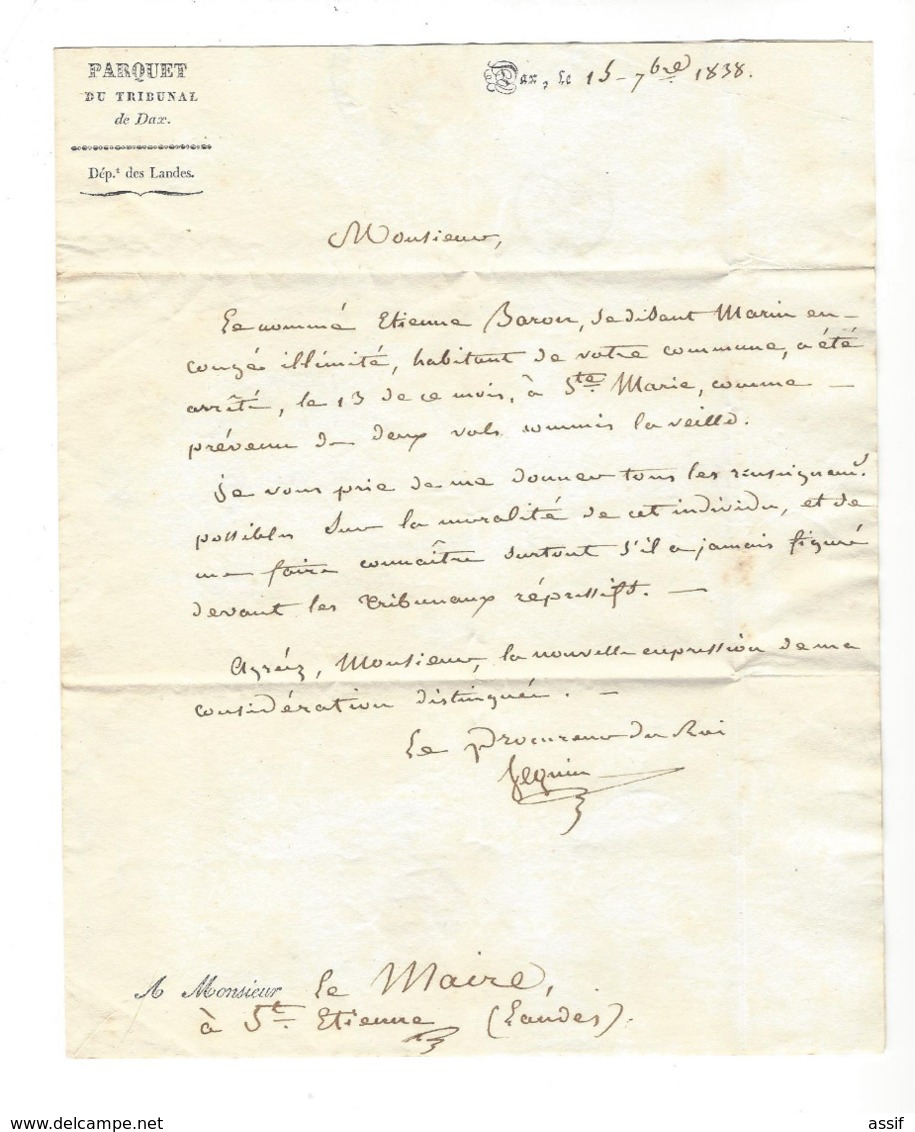 PARQUET
DU TRIBUNAL
de Dax.
Dép.t des Landes.
Dax, le 15 - 7bre 1838.
Monsieur,
Le nommé Etienne Baron, se disant Marin en
congé illimité, habitant de votre commune, a été
arrêté, le 13 de ce mois, à Ste. Marie, comme
prévenu de deux vols commis la veille.
Je vous prie de me donner tous les renseignemt.
possibles sur la moralité de cet individu, et de
me faire connaître surtout s'il a jamais figuré
devant les tribunaux répressifs.
Agréez, Monsieur, la nouvelle expression de ma
considération distinguée.
Le Procureur du Roi
A Monsieur le Maire,
à St. Etienne (Landes).
delcampe.net
assif